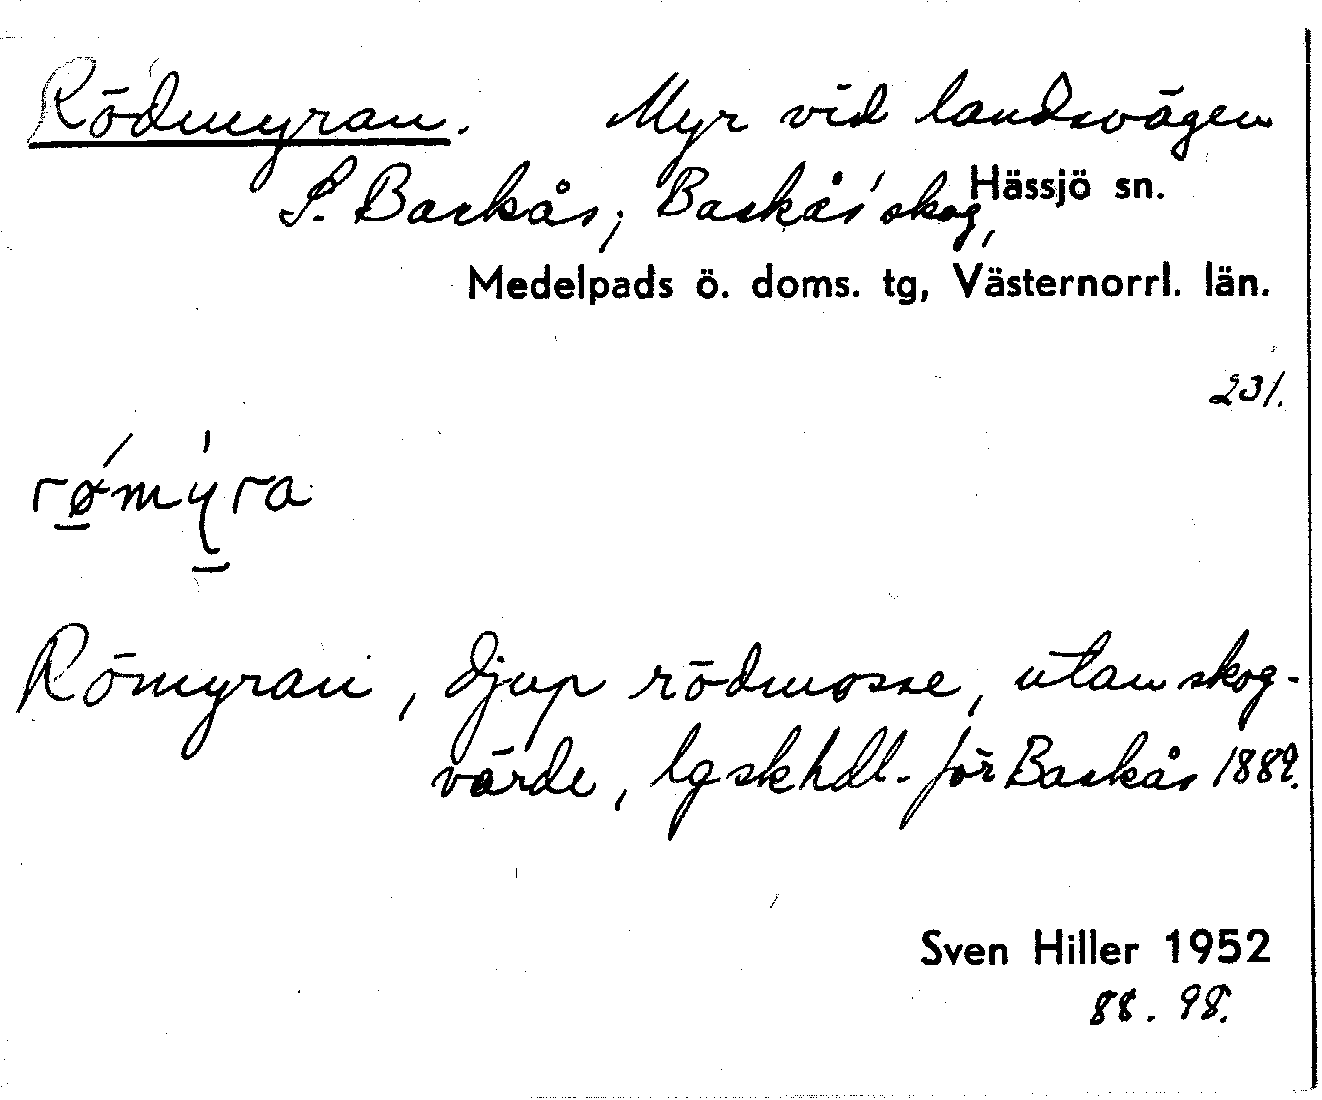 Rödmyran. Myr vid landsvägen
S. Baskås, Baskås' skog, Hässjö sn.
Medelpads ö. doms. tg, Västernorrl. län.
231.
rø̲´mỳ̲ra
Römyran, djup rödmosse, utan skog-
värde, lgskhdl. för Baskås 1889.
Sven Hiller 1952
88. 98.